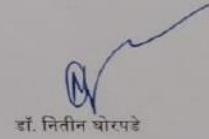 डॉ. नितीन घोरपडे